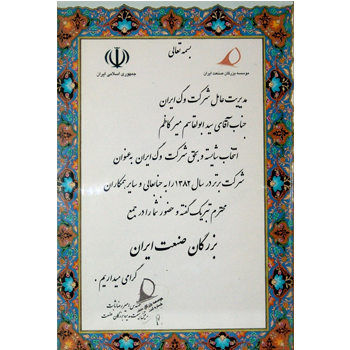 بسمه تعالی
موسسه بزرگان صنعت ایران
جمهوری اسلامی ایران
مدیریت عامل شرکت وک ایران
جناب آقای سید ابوالقاسم میر کاظم
انتخاب شایسته و بحق شرکت وک ایران به عنوان
شرکت برتر در سال ۱۳۸۲ را به جنابعالی و سایر همکاران
محترم تبریک گفته و حضور شما را در جمع
بزرگان صنعت ایران
گرامی میداریم .